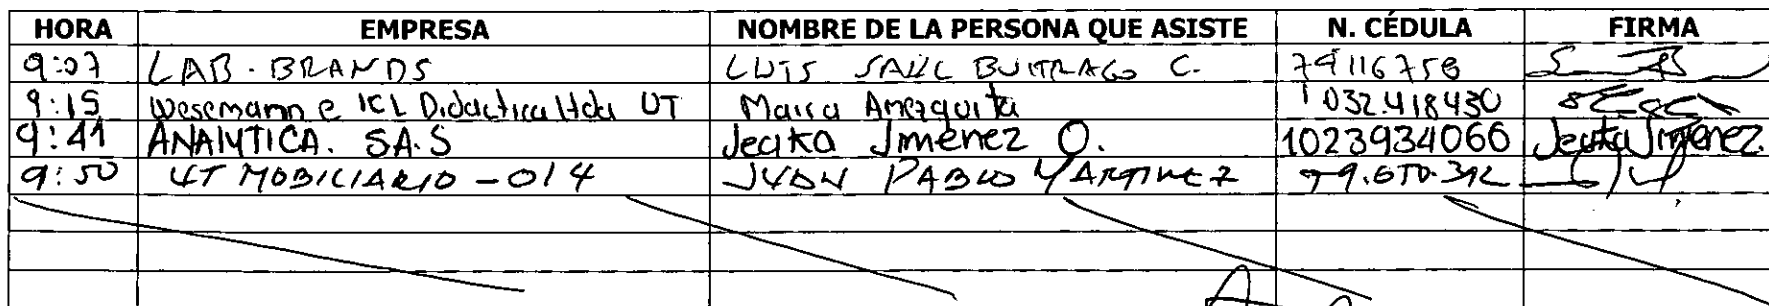 HORA EMPRESA NOMBRE DE LA PERSONA QUE ASISTE N. CÉDULA FIRMA
9:07 LAB. BRANDS LUIS SAUL BUITRAGO C. 79116758
9:15 Wesemann e ICL Didactica ltda UT Maira Amezquita 1032.418430
9:41 ANALYTICA. SA.S Jecika Jimenez O. 1023934066 Jecika Jimenez.
9:50 UT MOBILIARIO - 014 JUAN PABLO MARTINEZ